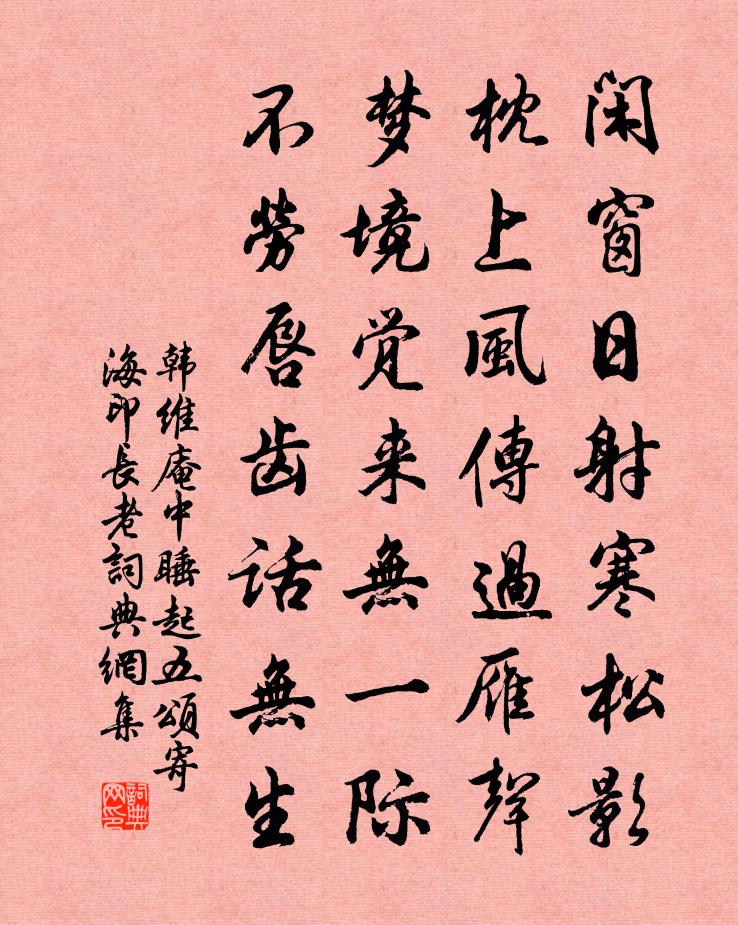 闲窗日射寒松影
枕上風傳過雁聲
梦境覚来無一际
不勞唇齿话無生
韩维庵中睡起五頌寄
海印長老詞典網集
詞典网印